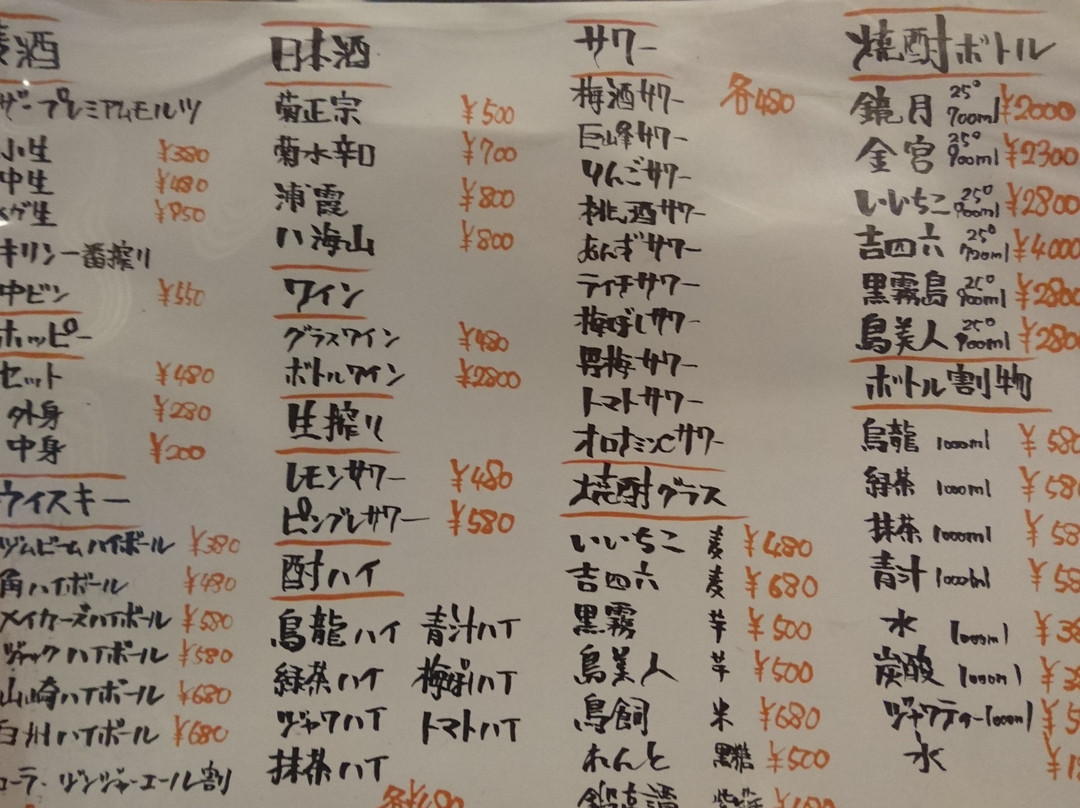 麦酒
ザ・プレミアムモルツ
小生 ¥380
中生 ¥480
メガ生 ¥850
キリン一番搾り
中ビン ¥550
ホッピー
セット ¥480
外身 ¥280
中身 ¥200
ウイスキー
ジムビームハイボール ¥380
角ハイボール ¥480
メイカーズハイボール ¥580
ジャックハイボール ¥580
山崎ハイボール ¥680
白州ハイボール ¥680
コーラ・ジンジャーエール割
日本酒
菊正宗 ¥500
菊水辛口 ¥700
浦霞 ¥800
八海山 ¥800
ワイン
グラスワイン ¥480
ボトルワイン ¥2800
生搾り
レモンサワー ¥480
ピングレサワー ¥580
酎ハイ
烏龍ハイ 青汁ハイ
緑茶ハイ 梅ぼしハイ
ジャワハイ トマトハイ
抹茶ハイ
各¥480
サワー
梅酒サワー 各480
巨峰サワー
りんごサワー
桃酒サワー
あんずサワー
ライチサワー
梅ぼしサワー
男梅サワー
トマトサワー
オロナミンCサワー
焼酎グラス
いいちこ 麦 ¥480
吉四六 麦 ¥680
黒霧 芋 ¥500
島美人 芋 ¥500
鳥飼 米 ¥680
れんと 黒糖 ¥500
焼酎ボトル
鏡月 25° 700ml ¥2000
金宮 25° 900ml ¥2300
いいちこ 25° 900ml ¥2800
吉四六 25° 720ml ¥4000
黒霧島 25° 900ml ¥2800
島美人 25° 900ml ¥280
ボトル割物
烏龍 1000ml ¥580
緑茶 1000ml ¥580
抹茶 1000ml ¥58
青汁 1000ml ¥58
水 1000ml ¥38
炭酸 1000ml ¥38
ジャワティー 1000ml ¥5
氷 ¥1